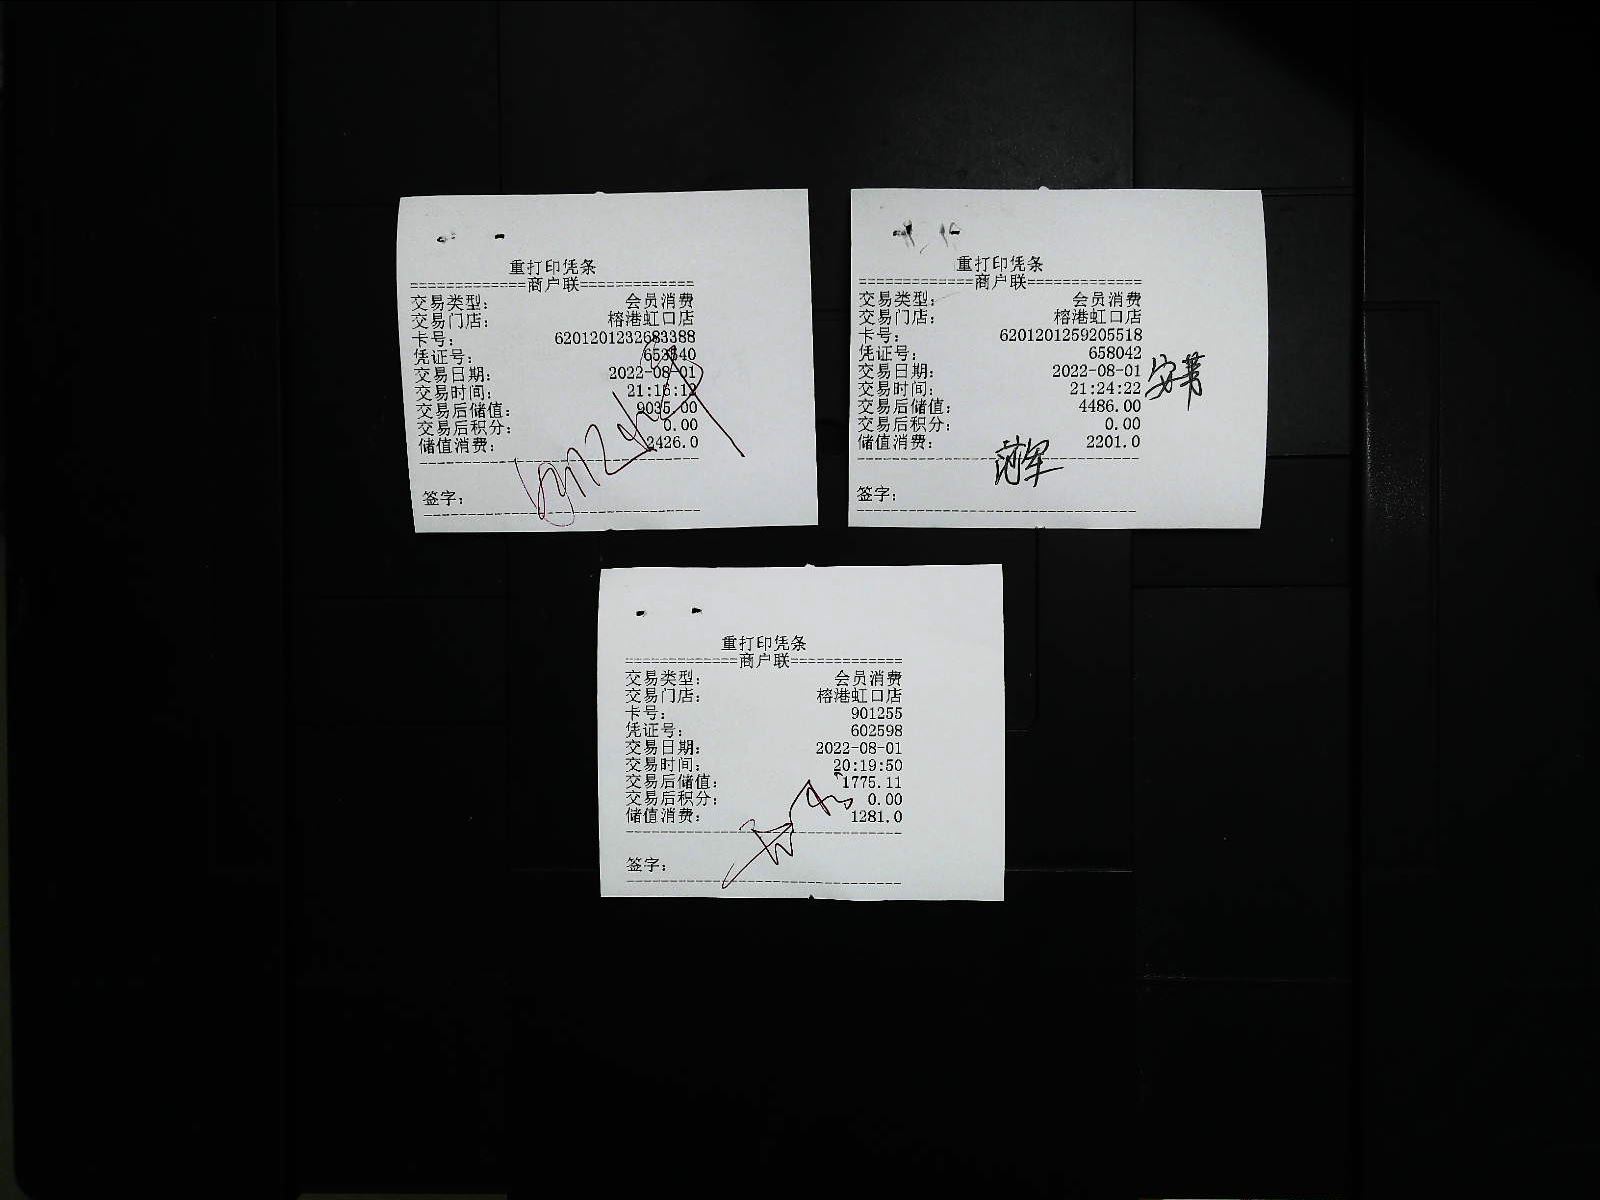 重打印凭条
=============商户联=============
交易类型: 会员消费
交易门店: 榕港虹口店
卡号: 6201201232683388
凭证号:
交易日期: 2022-08-01
交易时间: 21:16:12
交易后储值: 9035.00
交易后积分: 0.00
储值消费: 2426.0
签字:
重打印凭条
=============商户联=============
交易类型: 会员消费
交易门店: 榕港虹口店
卡号: 6201201259205518
凭证号: 658042
交易日期: 2022-08-01
交易时间: 21:24:22
交易后储值: 4486.00
交易后积分: 0.00
储值消费: 2201.0
签字:
重打印凭条
=============商户联=============
交易类型: 会员消费
交易门店: 榕港虹口店
卡号: 901255
凭证号: 602598
交易日期: 2022-08-01
交易时间: 20:19:50
交易后储值: 1775.11
交易后积分: 0.00
储值消费: 1281.0
签字: